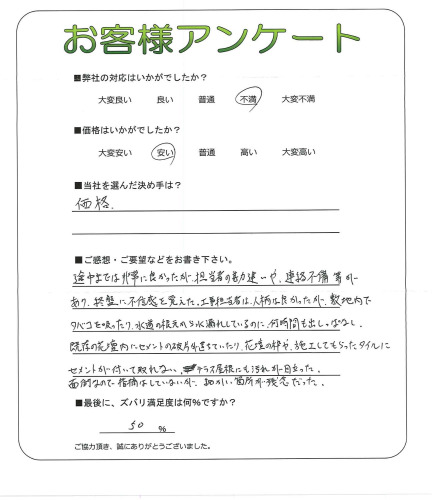 お客様アンケート
■弊社の対応はいかがでしたか？
大変良い 良い 普通 不満 大変不満
■価格はいかがでしたか？
大変安い 安い 普通 高い 大変高い
■当社を選んだ決め手は？
価格.
■ご感想・ご要望などをお書き下さい。
途中までは非常に良かったが、担当者の勘違いや、連絡不備等が
あり、終盤に不信感を覚えた。工事担当者は、人柄は良かったが、敷地内で
タバコを吸ったり、水道の根元から水漏れしているのに、何時間も出しっぱなし。
既存の花壇内にセメントの破片が落ちていたり、花壇の枠や、施工してもらったタイルに
セメントが付いて取れない。テラス屋根にも汚れが目立った。
面倒なので指摘はしていないが、細かい箇所が残念だった。
■最後に、ズバリ満足度は何％ですか？
50 ％
ご協力頂き、誠にありがとうございました。